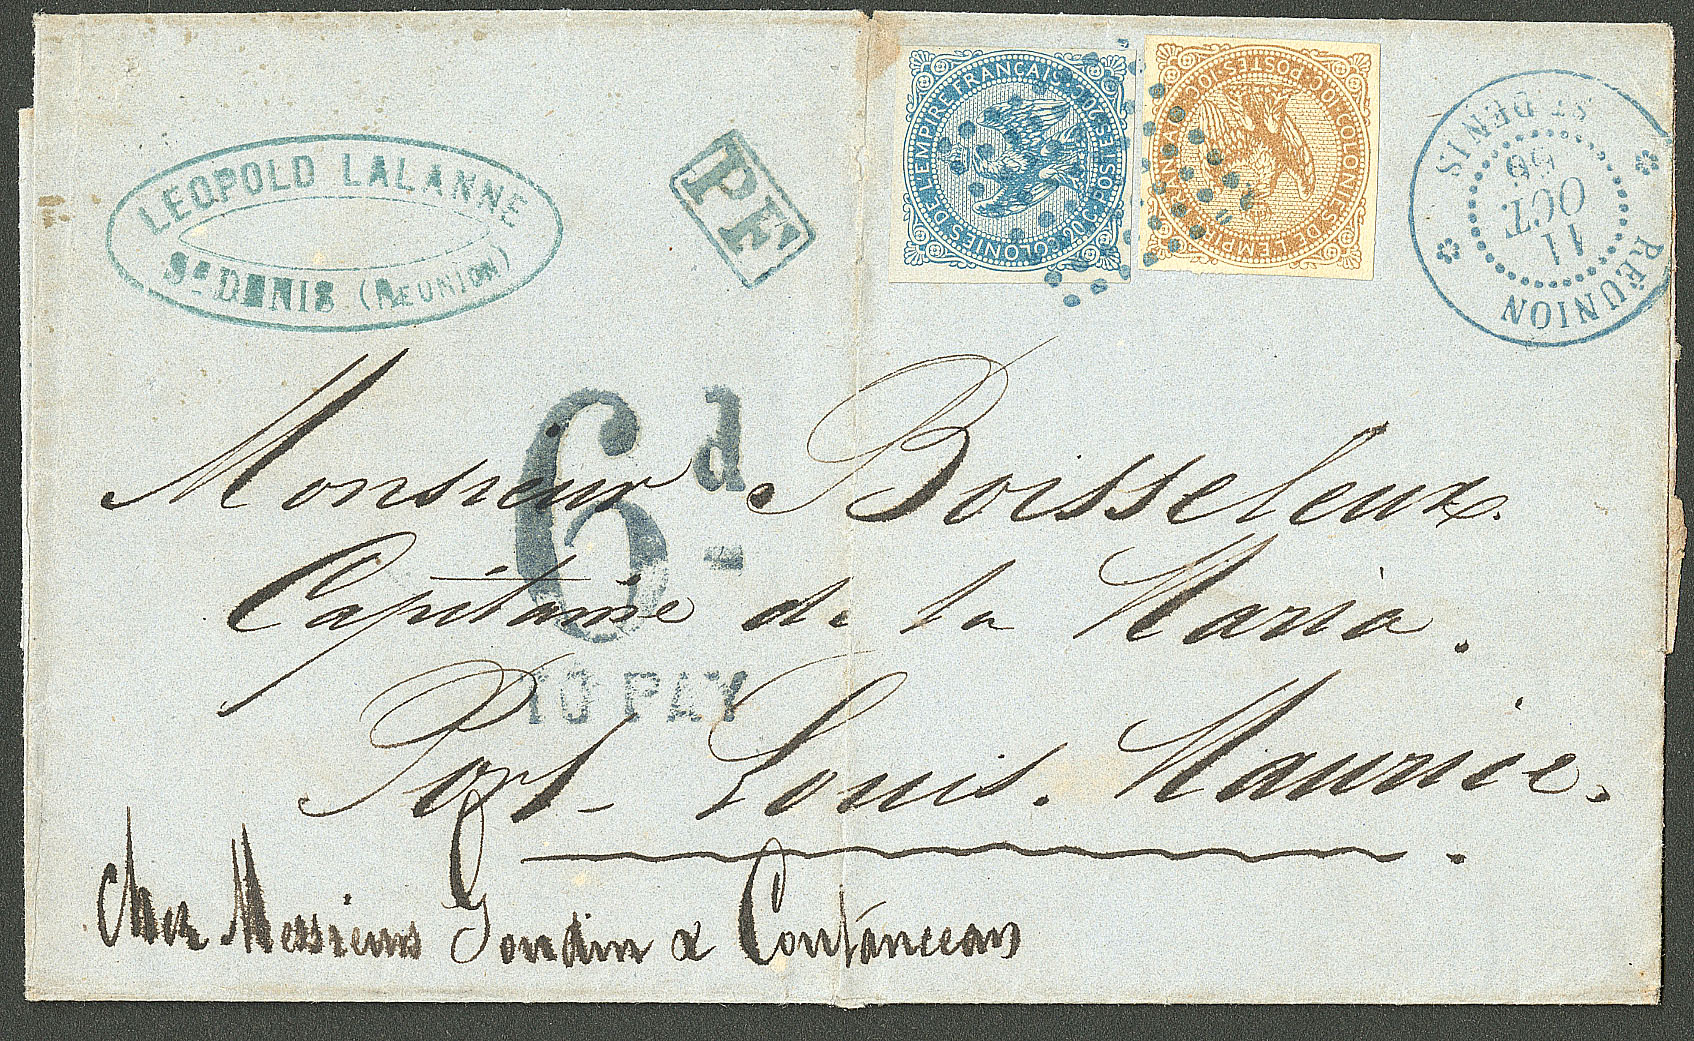 LEOPOLD LALANNE
St DENIS (REUNION)
PE
COLONIES DE L'EMPIRE FRANÇAIS
20c. POSTES 20c.
COLONIES DE L'EMPIRE
10c. POSTES 10c.
RÉUNION
11
OCT.
66
ST DENIS
6d
TO PAY
Monsieur Boisseleux.
Capitaine de la Maria.
Port Louis. Maurice.
Chez Messieurs Goudin & Coutanceau